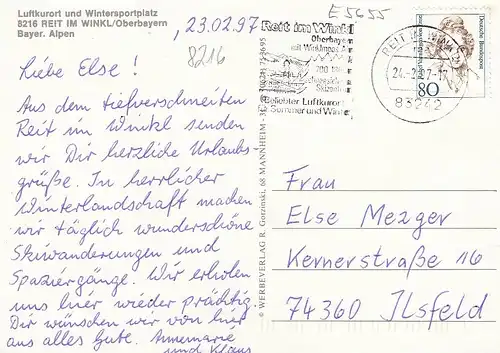 Luftkurort und Wintersportplatz
8216 REIT IM WINKL/Oberbayern
Bayer. Alpen
, 23.02.97
8216
Liebe Else!
Aus dem tiefverschneiten
Reit im Winkl senden
wir Dir herzliche Urlaubs-
grüße. In herrlicher
Winterlandschaft machen
wir täglich wunderschöne
Skiwanderungen und
Spaziergänge. Wir erholen
uns hier wieder prächtig.
Dir wünschen wir von hier
aus alles Gute. Annemarie
und Klaus
© WERBEVERLAG R. Gorzinski, 68 MANNHEIM
E 5655
Reit im Winkl
Oberbayern
mit Winklmoos Alm
700
Beliebter Luftkurort
Sommer und Winter
REIT IM WINKL
24.-2.97-17
83242
Deutsche Bundespost
80
Frau
Else Mezger
Kernerstraße 16
74360 Ilsfeld